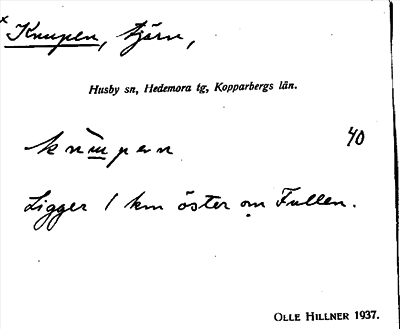 × Knupen, tjärn,
Husby sn, Hedemora tg, Kopparbergs län.
40
Ligger 1 km öster om Fullen.
OLLE HILLNER 1937.